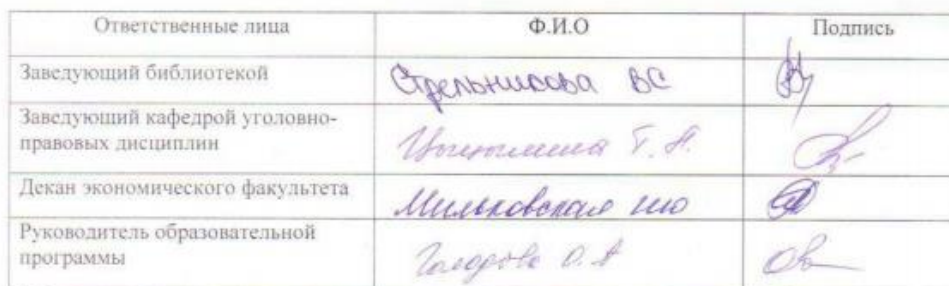 Ответственные лица Ф.И.О Подпись
Заведующий библиотекой Стрельникова ВС
Заведующий кафедрой уголовно-
правовых дисциплин Т. А.
Декан экономического факультета Мильковская
Руководитель образовательной
программы О. А